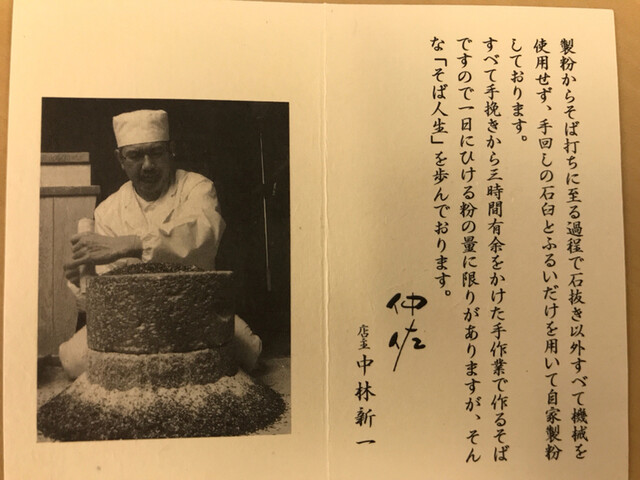 製粉からそば打ちに至る過程で石抜き以外すべて機械を
使用せず、手回しの石臼とふるいだけを用いて自家製粉
しております。
すべて手挽きから三時間有余をかけた手作業で作るそば
ですので一日にひける粉の量に限りがありますが、そん
な「そば人生」を歩んでおります。
仲佐
店主 中林新一